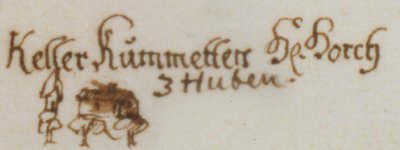 Keller Kummetten Hr. Horch
3 Huben.